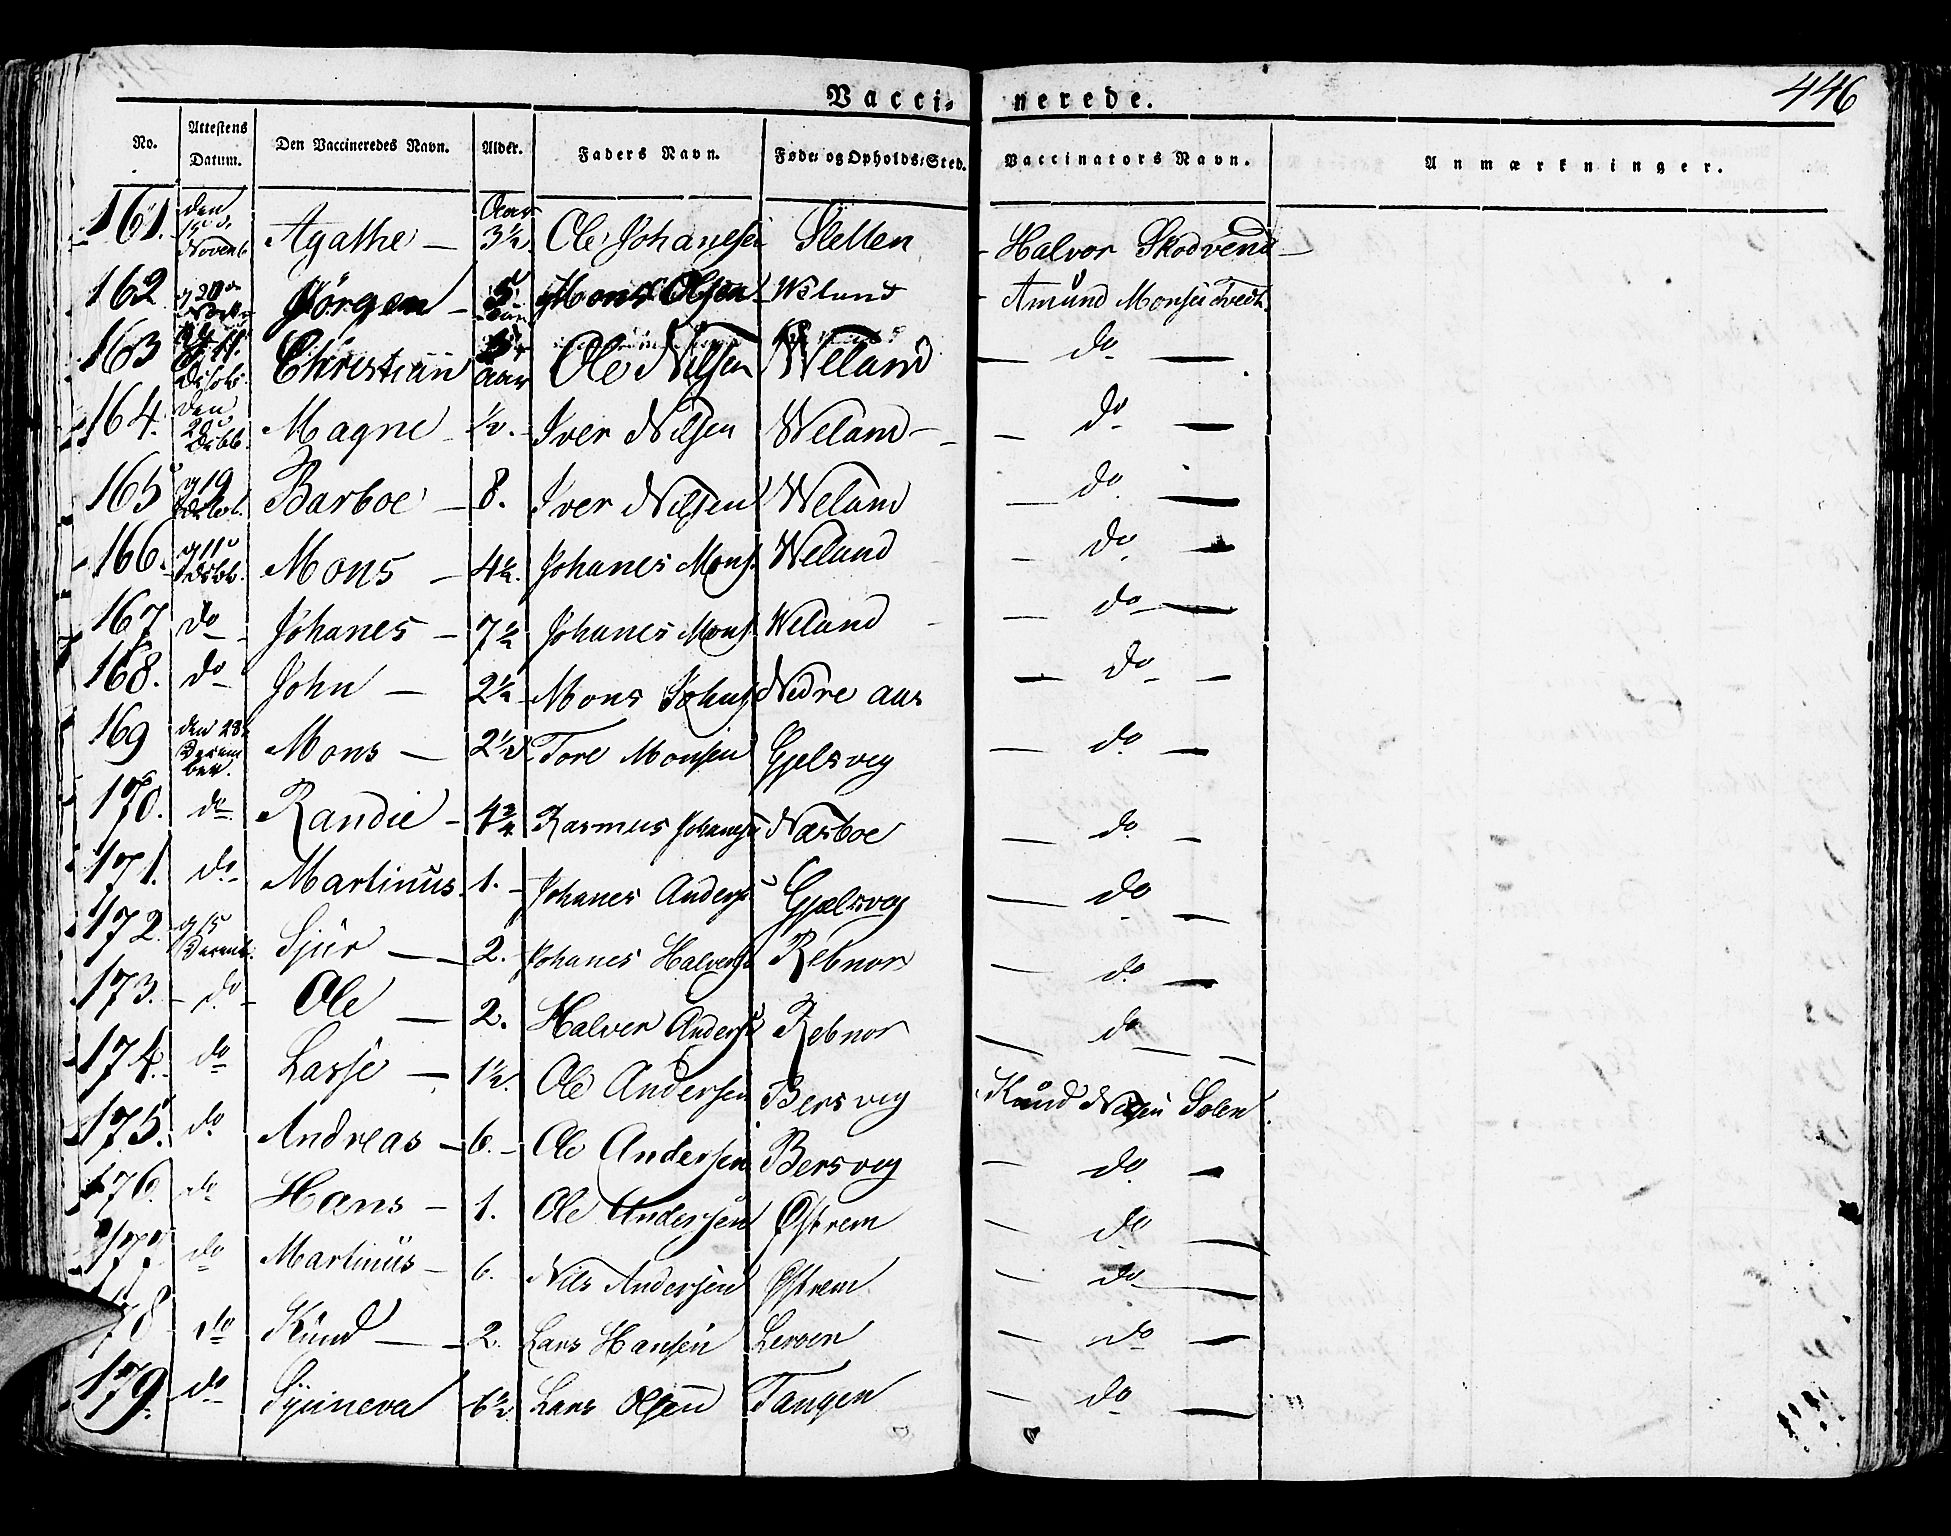 446
Vaccinerede.
No. Attestens Datum. Den Vaccineredes Navn. Alder. Faders Navn. Føde- og Opholds-Sted. Vaccinators Navn. Anmærkninger.
161. den Novemb. Agathe — Aar 3½ Ole Johanesen Sletten Halvor Skodvend —
162 Jörgen — 5 Mons Olsen Weland Amund Monsen Tvedt.
163 Christian Aar Ole Nilsen Weland — do —
164. den Desbb. Magne — ½. Iver Nilsen Weland — do —
165 19 Barboe — 8. Iver Nilsen Weland — do —
166. 11 Desbb. Mons — 4½. Johanes Mons. Weland — do —
167 do Johanes — 7½ Johanes Mons. Weland — do —
168. do John — 2½ Mons Johns Nedre aas — do —
169 den 28 Decem ber. Mons — 2½ Tore Monsen Gjelsveg — do —
170. do Randie — 4¾ Rasmus Johanes Næsboe — do —
171. do Martinus. 1. Johanes Anders Gjælsveg — do —
172. 15 Decemb. Sjur — 2. Johanes Halvors Rebnor — do —
173. do Ole — 2. Halver Anders Rebnor — do —
174. do Lasse — 1½. Ole Andersen Bersveg Knud Solen.
175. do Andreas — 6. Ole Andersen Bersveg — do —
176. do Hans — 1. Ole Andersen Østrem — do —
177. do Martinus — 6. Nils Andersen Østrem — do —
178 do Knud — 2. Lars Hansen Leroen — do —
179. do Syneva 6½ Lars Olsen Tangen — do —